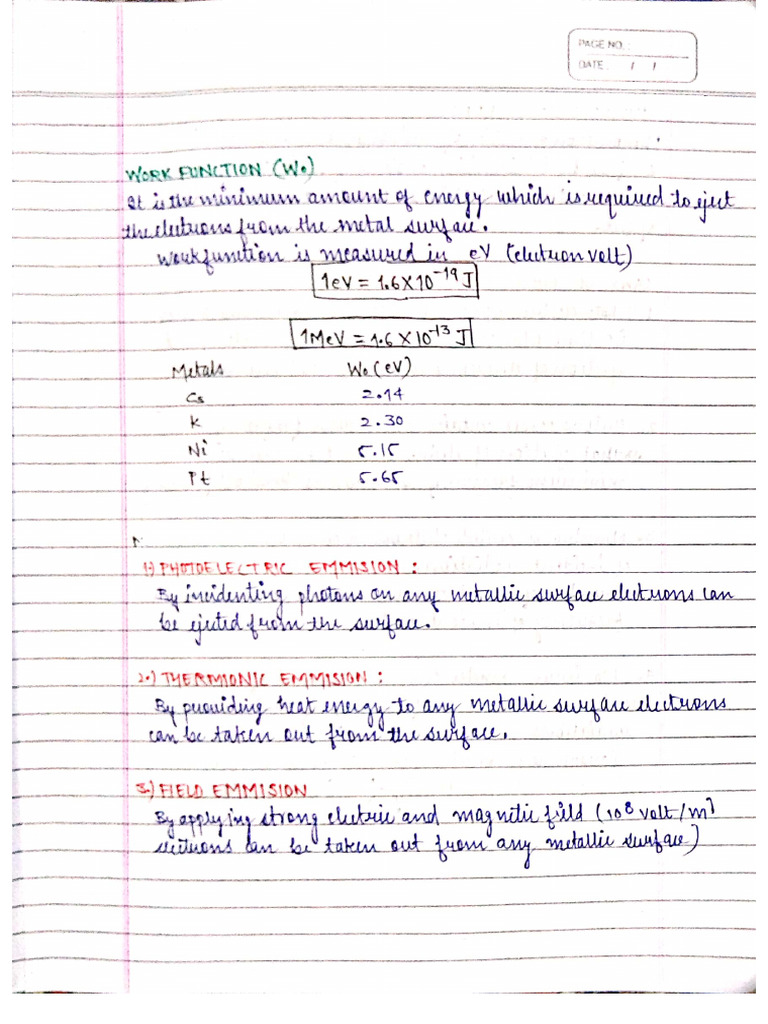 PAGE NO. :
DATE : / /
WORK FUNCTION (W₀)
It is the minimum amount of energy which is required to eject
the electrons from the metal surface.
Workfunction is measured in eV (electron volt)
1eV = 1.6X10⁻¹⁹J
1MeV = 1.6 X 10⁻¹³ J
Metals W₀(eV)
Cs 2.14
K 2.30
Ni 5.15
Pt 5.65
1) PHOTOELECTRIC EMMISION :
By incidenting photons on any metallic surface electrons can
be ejected from the surface.
2.) THERMIONIC EMMISION :
By providing heat energy to any metallic surface electrons
can be taken out from the surface.
3.) FIELD EMMISION
By applying strong electric and magnetic field (10⁸ volt/m)
electrons can be taken out from any metallic surface)